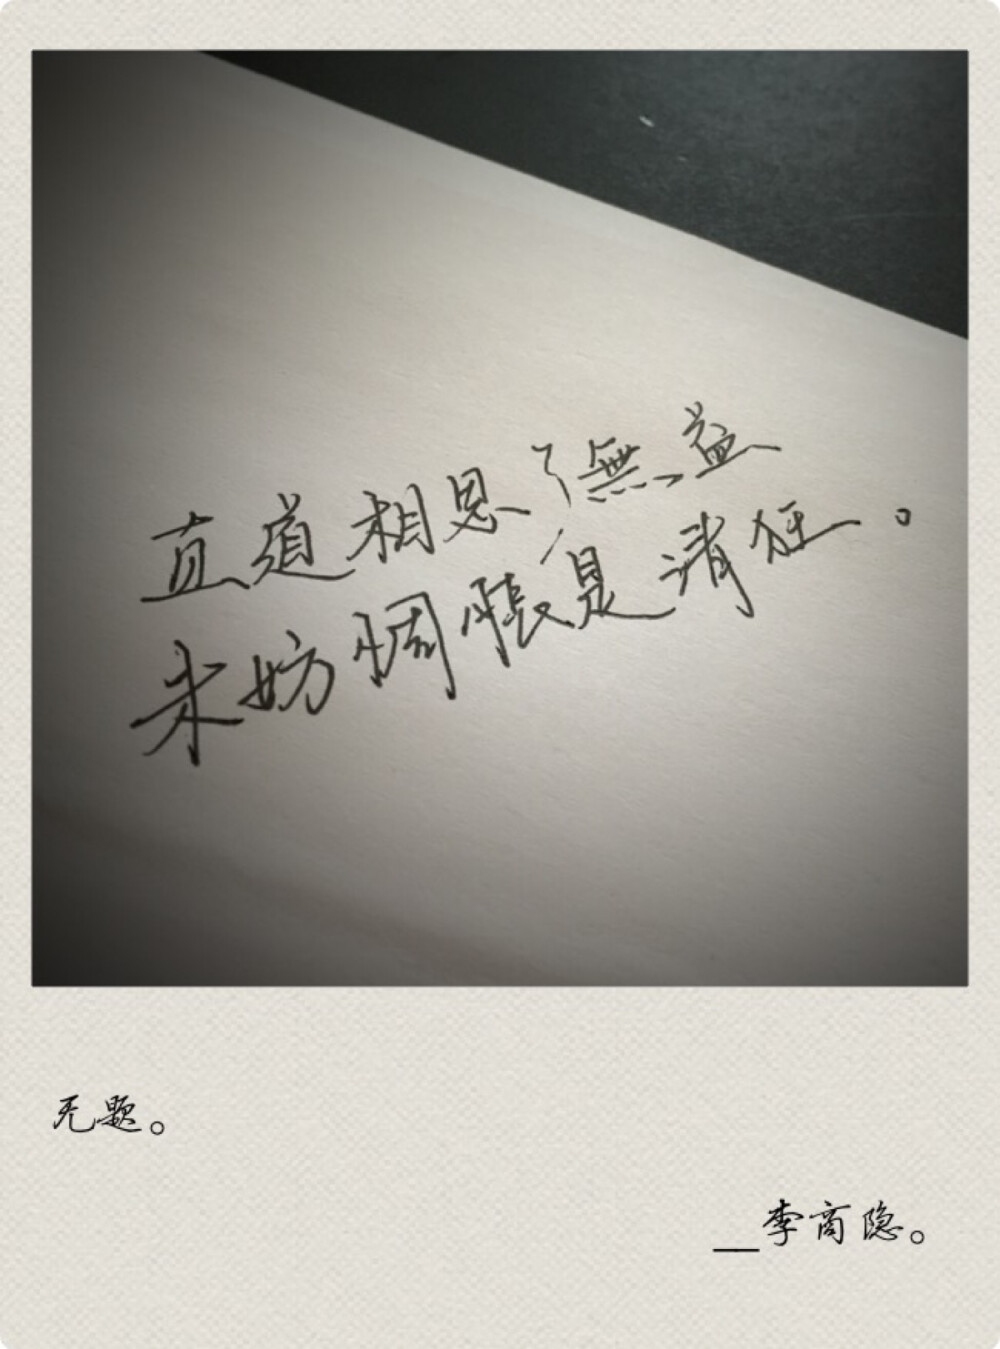 直道相思了無益
未妨惆悵是清狂。
无题。
__李商隐。